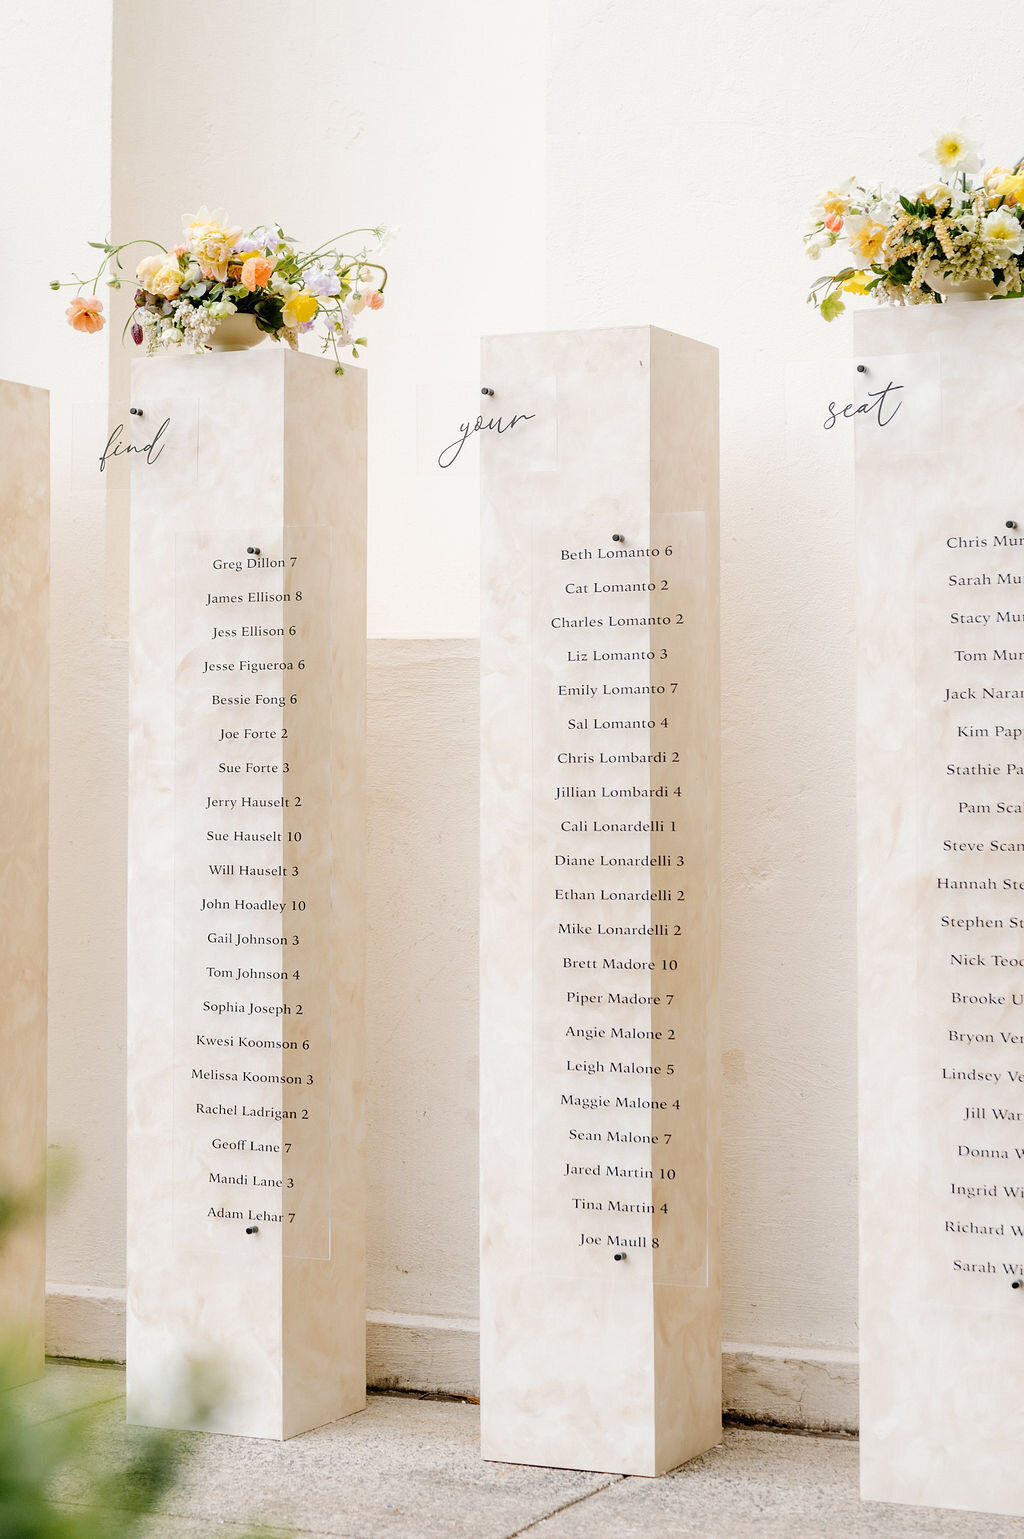 find
your
seat
Greg Dillon 7
James Ellison 8
Jess Ellison 6
Jesse Figueroa 6
Bessie Fong 6
Joe Forte 2
Sue Forte 3
Jerry Hauselt 2
Sue Hauselt 10
Will Hauselt 3
John Hoadley 10
Gail Johnson 3
Tom Johnson 4
Sophia Joseph 2
Kwesi Koomson 6
Melissa Koomson 3
Rachel Ladrigan 2
Geoff Lane 7
Mandi Lane 3
Adam Lehar 7
Beth Lomanto 6
Cat Lomanto 2
Charles Lomanto 2
Liz Lomanto 3
Emily Lomanto 7
Sal Lomanto 4
Chris Lombardi 2
Jillian Lombardi 4
Cali Lonardelli 1
Diane Lonardelli 3
Ethan Lonardelli 2
Mike Lonardelli 2
Brett Madore 10
Piper Madore 7
Angie Malone 2
Leigh Malone 5
Maggie Malone 4
Sean Malone 7
Jared Martin 10
Tina Martin 4
Joe Maull 8
Chris Mur
Sarah Mu
Stacy Mur
Tom Mur
Jack Naran
Kim Pap
Stathie Pa
Pam Sca
Steve Scan
Hannah Ste
Stephen St
Nick Teo
Brooke U
Bryon Ver
Lindsey Ve
Jill War
Donna W
Ingrid Wi
Richard W
Sarah Wi